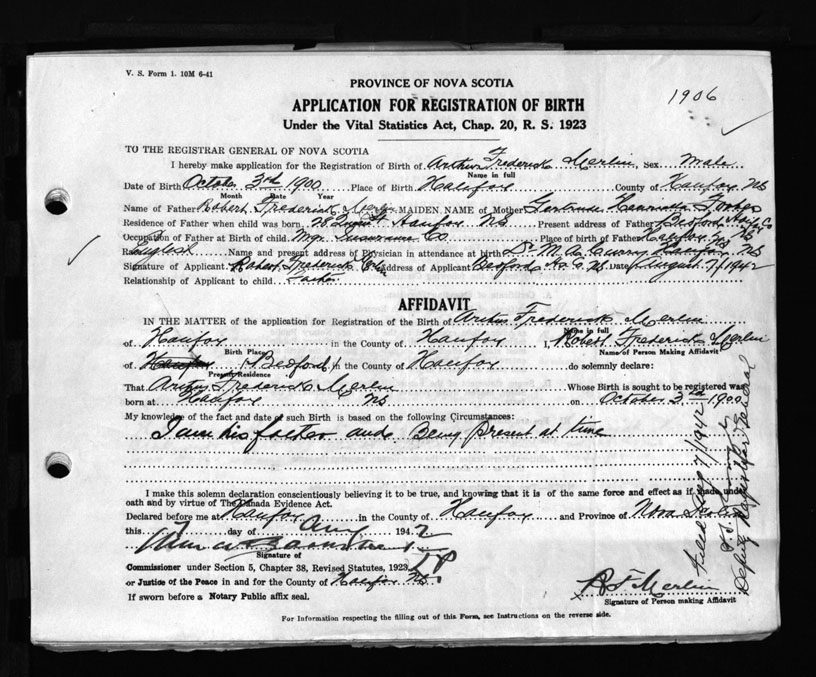 V. S. Form 1. 10M 6-41
PROVINCE OF NOVA SCOTIA
1906
APPLICATION FOR REGISTRATION OF BIRTH
Under the Vital Statistics Act, Chap. 20, R. S. 1923
TO THE REGISTRAR GENERAL OF NOVA SCOTIA
I hereby make application for the Registration of Birth of Arthur Frederick Merlin, Sex Male
Name in full
Date of Birth October 3rd 1900 Place of Birth Halifax County of Halifax NS
Month Date Year
Name of Father Robert Frederick Merlin MAIDEN NAME of Mother Gertrude Henrietta Forbes
Residence of Father when child was born 28 Halifax NS Present address of Father Bedford Hfx Co
Occupation of Father at Birth of child Mgr Insurance Co Place of birth of Father Halifax NS
English Name and present address of Physician in attendance at birth Dr M. A. Curry Halifax NS
Signature of Applicant Robert Frederick Address of Applicant Bedford Hx Co NS Date August 7/1942
Relationship of Applicant to child Father
AFFIDAVIT
IN THE MATTER of the application for Registration of the Birth of Arthur Frederick Merlin
Name in full
of Halifax in the County of Halifax I, Robert Frederick Merlin
Birth Place Name of Person Making Affidavit
of Halifax Bedford in the County of Halifax do solemnly declare:
Present Residence
That Arthur Frederick Merlin Whose Birth is sought to be registered was
born at Halifax NS on October 3rd 1900
My knowledge of the fact and date of such Birth is based on the following Circumstances:
I am his father and Being present at time
I make this solemn declaration conscientiously believing it to be true, and knowing that it is of the same force and effect as if made under
oath and by virtue of The Canada Evidence Act.
Declared before me at Halifax in the County of Halifax and Province of Nova Scotia
this day of Aug 1942
Signature of
Commissioner under Section 5, Chapter 38, Revised Statutes, 1923
or Justice of the Peace in and for the County of Halifax NS
R F Merlin
If sworn before a Notary Public affix seal.
Signature of Person making Affidavit
For Information respecting the filling out of this Form, see Instructions on the reverse side.
Filed Aug 7/1942
Deputy Registrar General